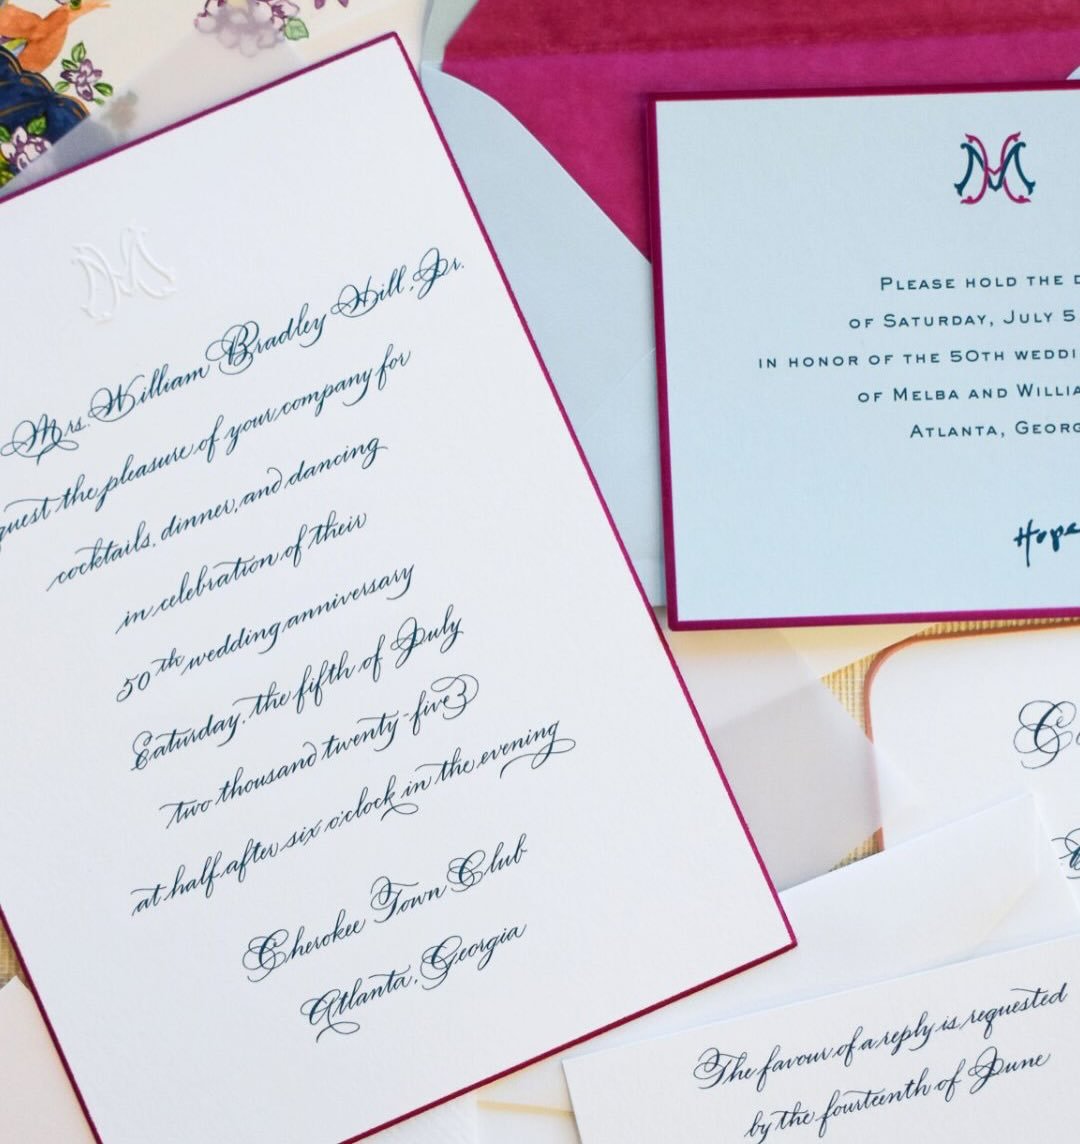 Mrs. William Bradley Hill, Jr.
quest the pleasure of your company for
cocktails, dinner, and dancing
in celebration of their
50th wedding anniversary
Saturday, the fifth of July
two thousand twenty-five
at half after six o'clock in the evening
Cherokee Town Club
Atlanta, Georgia
PLEASE HOLD THE D
OF SATURDAY, JULY 5
IN HONOR OF THE 50TH WEDDI
OF MELBA AND WILLIA
ATLANTA, GEORG
Hope
The favour of a reply is requested
by the fourteenth of June